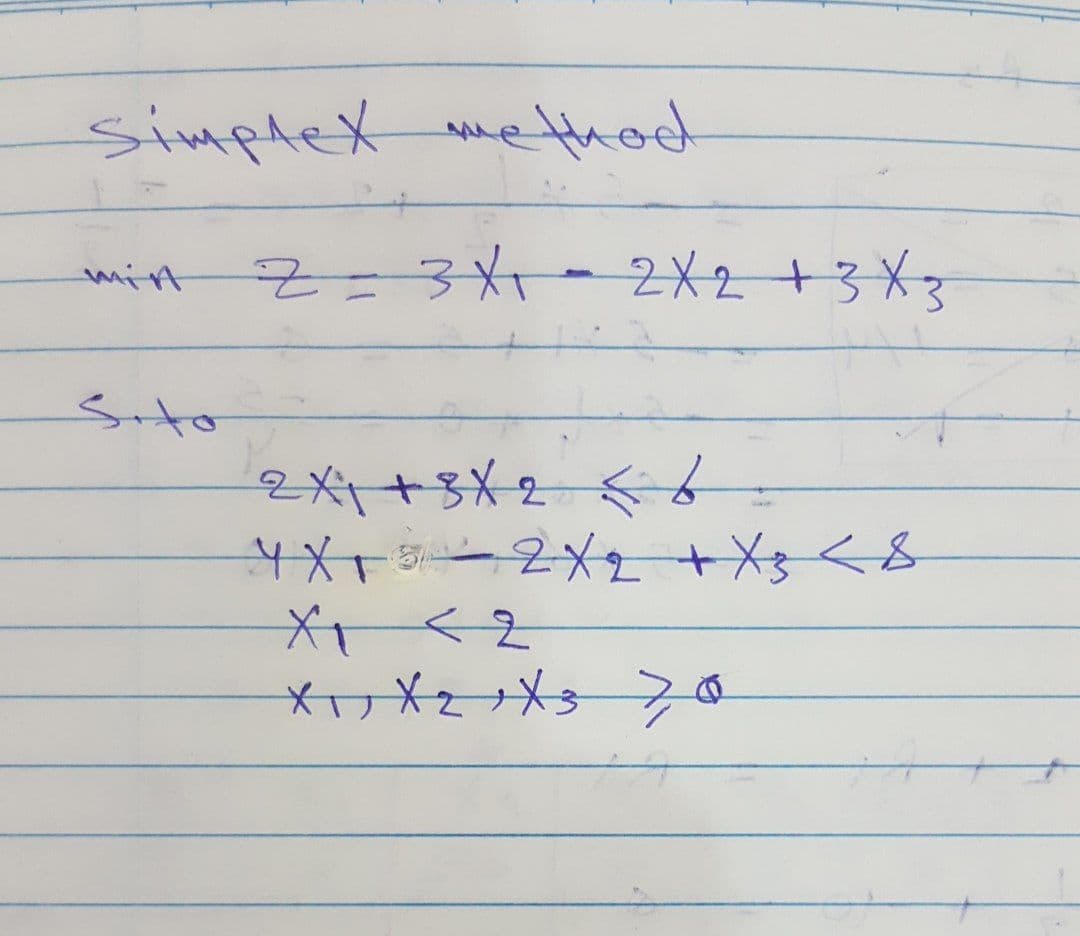 simplex method
min Z = 3X1 - 2X2 + 3X3
S.to
2X1 + 3X2 ≤ 6
4X1 - 2X2 + X3 < 8
X1 < 2
X1, X2, X3 ≥ 0